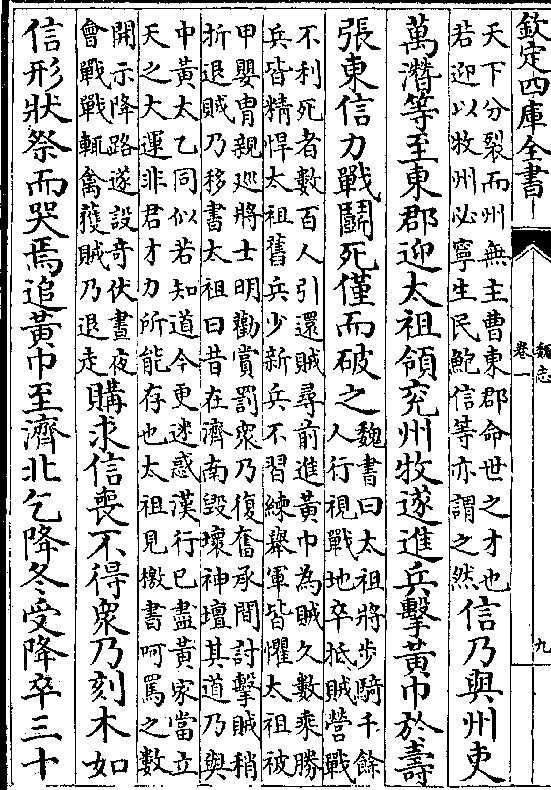 欽定四庫全書
魏志
卷一
九
天下分裂而州無主曹東郡命世之才也
若迎以牧州必寧生民鮑信等亦謂之然
信乃與州吏
萬潛等至東郡迎太祖領兖州牧遂進兵擊黃巾於壽
張東信力戰鬭死僅而破之
魏書曰太祖將步騎千餘
人行視戰地卒抵賊營戰
不利死者數百人引還賊尋前進黃巾為賊久數乘勝
兵皆精悍太祖舊兵少新兵不習練舉軍皆懼太祖被
甲嬰胄親巡將士明勸賞罰衆乃復奮承間討擊賊稍
折退賊乃移書太祖曰昔在濟南毀壞神壇其道乃與
中黃太乙同似若知道今更迷惑漢行已盡黃家當立
天之大運非君才力所能存也太祖見檄書呵罵之數
開示降路遂設奇伏晝夜
會戰戰輒禽獲賊乃退走
購求信喪不得衆乃刻木如
信形狀祭而哭焉追黃巾至濟北乞降冬受降卒三十